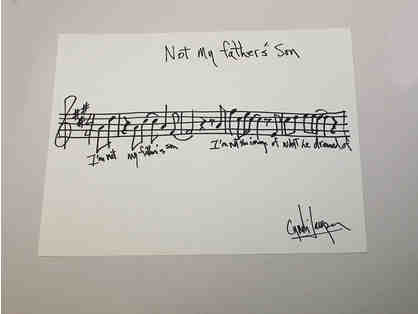 Not my father's Son
I'm not my father's son I'm not the image of what he dreamed of
Cyndi Lauper